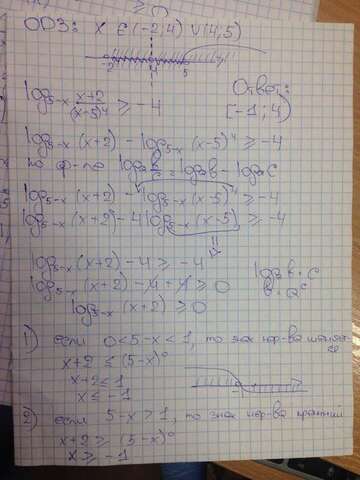 ОДЗ: x ∈ (-2;4) ∪ (4;5)
-2 4 5
log₅₋ₓ (x+2)/(x-5)⁴ ≥ -4
Ответ:
[-1; 4)
log₅₋ₓ (x+2) - log₅₋ₓ (x-5)⁴ ≥ -4
по ф-ле logₐ b/c = logₐb - logₐc
log₅₋ₓ (x+2) - log₅₋ₓ (x-5)⁴ ≥ -4
log₅₋ₓ (x+2) - 4 log₅₋ₓ (x-5) ≥ -4
log₅₋ₓ (x+2) - 4 ≥ -4
logₐ b = c
b = aᶜ
log₅₋ₓ (x+2) - 4 + 4 ≥ 0
log₅₋ₓ (x+2) ≥ 0
1) если 0 < 5-x < 1, то знак нер-ва
x+2 ≤ (5-x)⁰
x+2 ≤ 1
x ≤ -1
2) если 5-x > 1, то знак нер-ва
x+2 ≥ (5-x)⁰
x ≥ -1